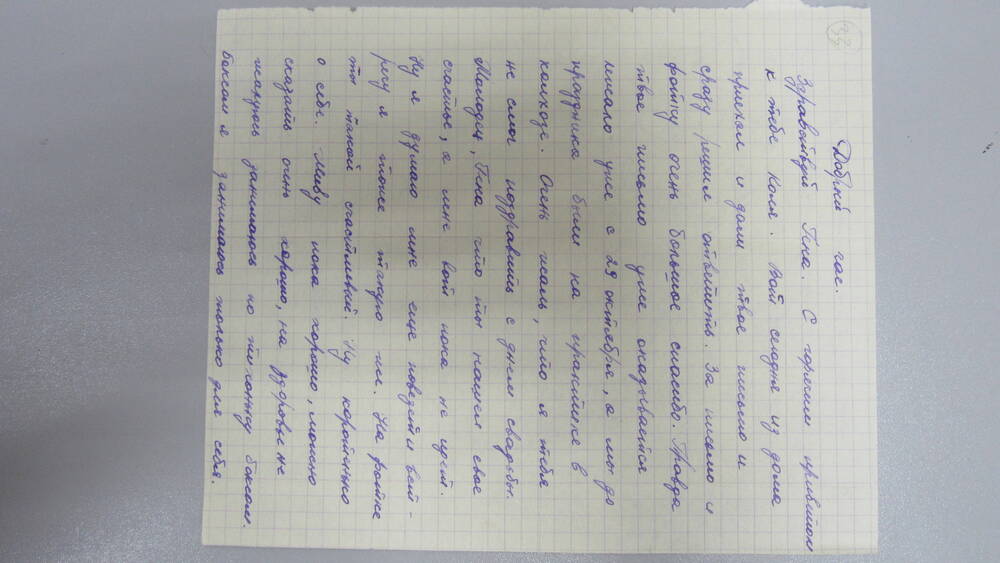 Добрый час.
Здравствуй Гена. С горячим приветом
к тебе Коля. Вот сегодня из дома
приехал и дали твое письмо и
сразу решил ответить. За письмо и
фотку очень большое спасибо. Правда
твое письмо уже оказывается
лежало уже с 29 октября, а мы до
праздника были на практике в
колхозе. Очень жаль, что я тебя
не смог поздравить с днем свадьбы.
Молодец, Гена что ты нашел свое
счастье, а мне вот пока не идет.
Ну я думаю мне еще повезет и вст-
речу я тоже такую же. На фотке
ты такой счастливый. Ну коротенько
о себе. Живу пока хорошо, можно
сказать очень хорошо, на здоровье не
жалуюсь занимаюсь по-тихоньку боксом.
Боксом я занимаюсь только для себя.